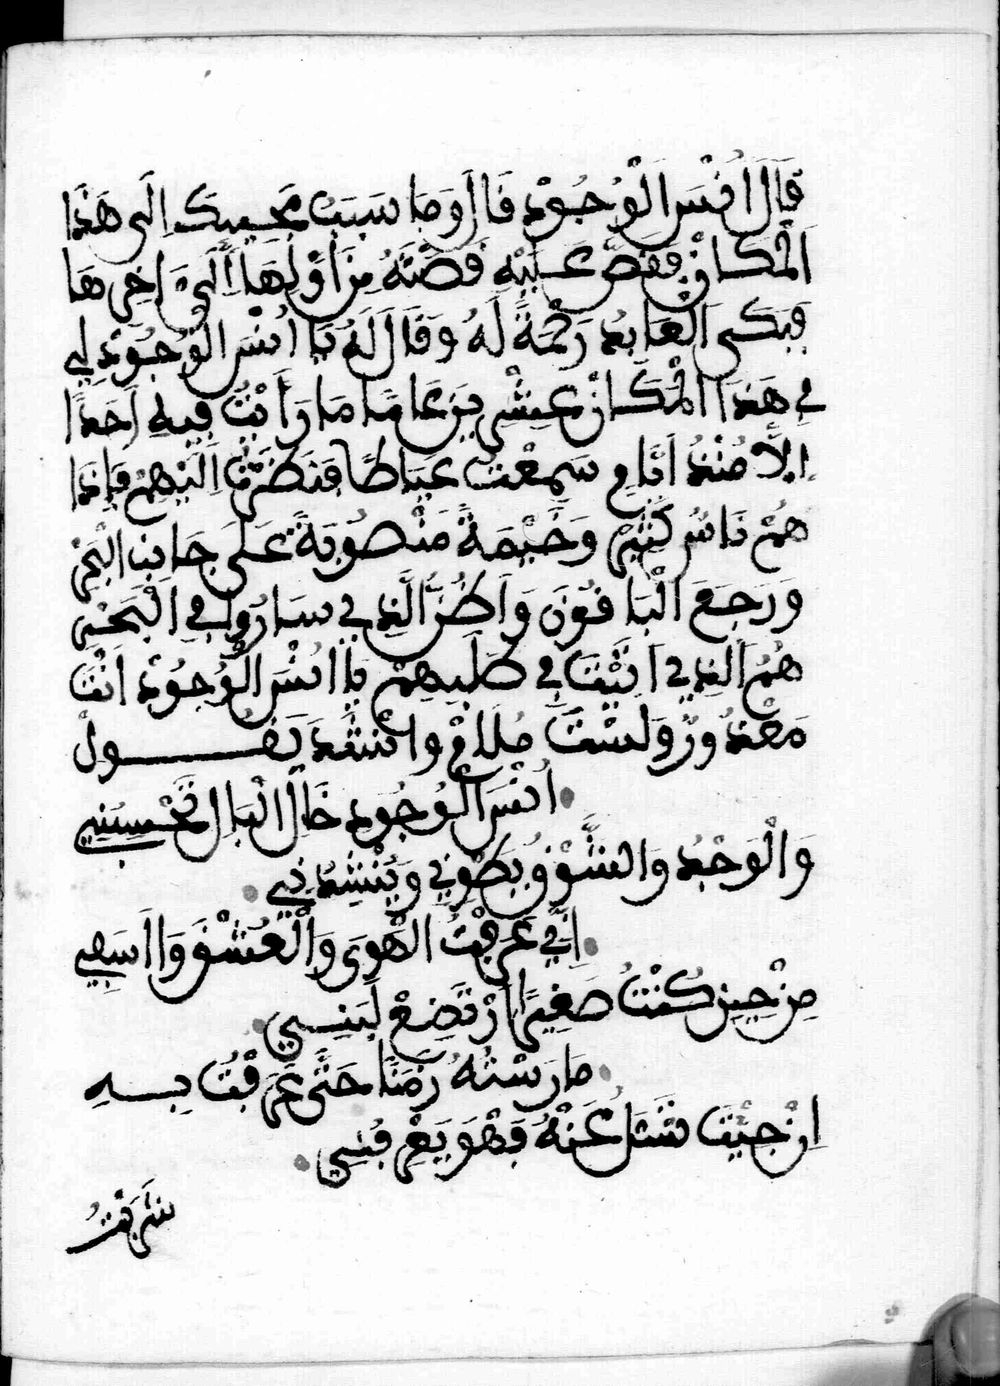 قَالَ أُنْسَ الْوُجُوْدْ قَالَ وَمَا سَبَبُ مَجِيئِكَ إِلَى هَذَا
الْمَكَانْ فَقَصَّ عَلَيْهِ قَصَّتَهُ مِنْ أَوَّلِهَا إِلَى اخِرِهَا
فَبَكَى الْعَابِدُ رَحْمَةً لَهُ وَقَالَ لَهُ يَا أُنْسَ الْوُجُوْدْ لِي
فِي هَذَا الْمَكَانْ عِشْرِينَ عَامًا مَا رَأَيْتُ فِيهِ أَحَدًا
إِلَّا مُنْذُ أَيَّامٍ سَمِعْتُ عِيَاطًا فَنَظَرْتُ إِلَيْهِمْ فَإِذَا
هُمْ نَاسٌ كَثِيرْ وَخَيْمَةً مَنْصُوبَةً عَلَى جَانِبِ الْبَحْرْ
وَرَجَعَ الْبَاقُونَ وَأَظُنُّ الَّذِي سَارُوا فِي الْبَحْرِ
هُمُ الَّذِي أَتَيْتَ فِي طَلَبِهِمْ يَا أُنْسَ الْوُجُوْدْ أَنْتَ
مَعْذُورٌ وَلَسْتَ مُلَامْ وَانْشَدَ يَقُـــولْ
أُنْسَ الْوُجُودِ خَالَ الْبَالِ تَحْسِبُنِي
وَالْوَجْدُ وَالشَّوْقُ يَطْوِنِي وَيَنْشُدُنِي
إِنِّي عَرَفْتُ الْهَوَى وَالْعُشْقَ وَا أَسَفِي
مِنْ حِينِ كُنْتُ صَغِيرًا أَرْتَضِعْ لَبَنِـي
مَارَسْتُهُ زَمَنًا حَتَّى عَرَفْتُ بِـهِ
إِنْ جِيْتَ تَسَلْ عَنْهُ فَهْوَ يَعْرِفُنِي
شَرِبْتُ